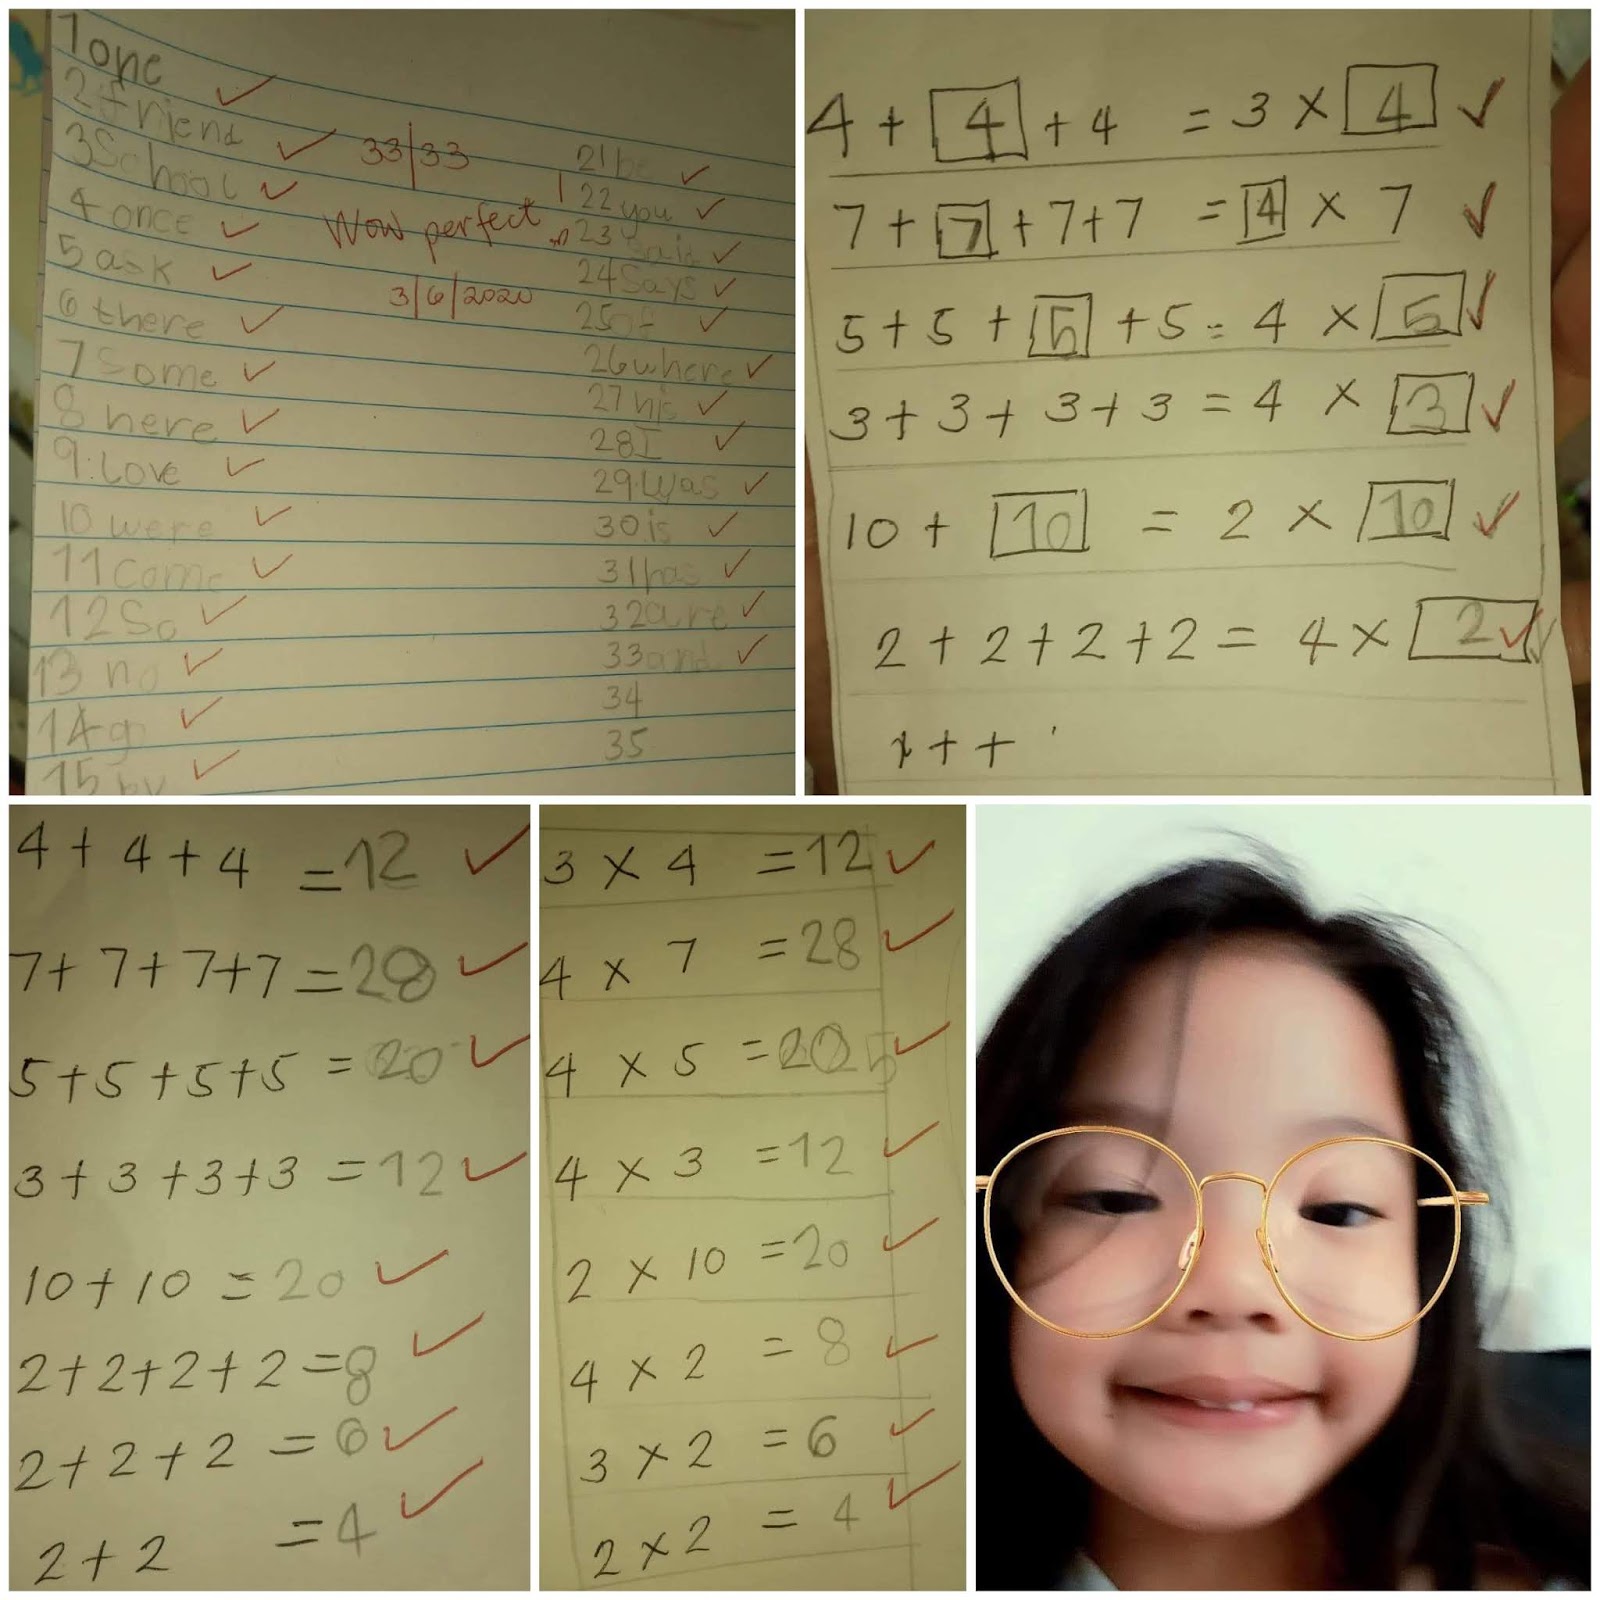 1 one
2 friend
3 School
4 once
5 ask
6 there
7 Some
8 here
9. Love
10 were
11 Come
12 So
13 no
14 go
15 by
33/33
Wow perfect
3/6/2020
21 be
22 you
23 said
24 Says
25 of
26 where
27 his
28 I
29. was
30. is
31 has
32 are
33 and
34
35
4 + 4 + 4 = 3 × 4
7 + 7 + 7 + 7 = 4 × 7
5 + 5 + 5 + 5 = 4 × 5
3 + 3 + 3 + 3 = 4 × 3
10 + 10 = 2 × 10
2 + 2 + 2 + 2 = 4 × 2
+ +
4 + 4 + 4 = 12
7 + 7 + 7 + 7 = 28
5 + 5 + 5 + 5 = 20
3 + 3 + 3 + 3 = 12
10 + 10 = 20
2 + 2 + 2 + 2 = 8
2 + 2 + 2 = 6
2 + 2 = 4
3 × 4 = 12
4 × 7 = 28
4 × 5 = 20
4 × 3 = 12
2 × 10 = 20
4 × 2 = 8
3 × 2 = 6
2 × 2 = 4